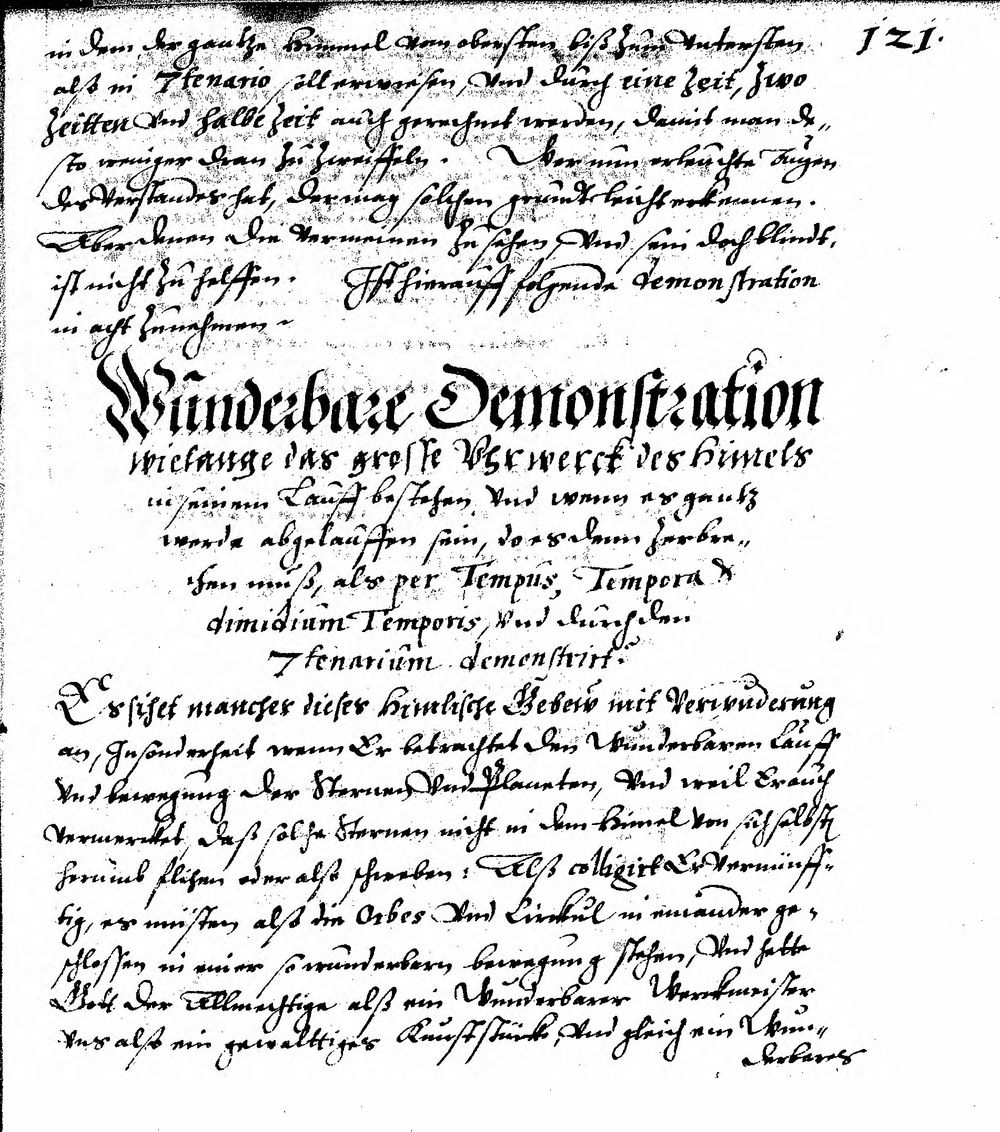 121.
in dem der gantze Himmel vom obersten biß zum Untersten
alß in 7tenario soll erwiesen, Und durch eine Zeit, Zwo
Zeitten Und halbe Zeit auch gerechnet werden, damit man de„
sto weniger dran zu zweiffeln. Wer nun erleuchte Augen
des Verstandes hat, der mag solchen grundt leicht erkennen.
Aber denen die vermeinen zu sehen, Und sein doch blindt,
ist nicht zu helffen. Ist hierauff folgende demonstration
in acht zunehmen.
Wunderbare Demonstration
wielange das grosse Uhrwerck des Himels
in seinem Lauff bestehen, Und wenn es gantz
werde abgelauffen sein, do es denn zerbre„
chen muß, als per Tempus, Tempora &
dimidium Temporis, Und durch den
7tenarium demonstrirt.
Es sihet mancher dieses Himlische Gebew mit Verwuderung
an, Insonderheit wenn Er betrachtet den Wunderbaren Lauff
Und bewegung der Sternen Und Planeten, Und weil Er auch
vermercket, daß solche Sternen nicht in dem Himel von sich selbst
herumb flihen oder alß schweben: Alß colligirt Er Vernünff„
tig, es müsten alß die Orbes Und Circkul in einander ge„
schlossen in einer so wunderbarn bewegung stehen, Und hette
Gott der Allmechtige alß ein Wunderbarer Werckmeister
Uns alß ein gewalttiges Kunststücke, Und gleich ein Wun„
derbares